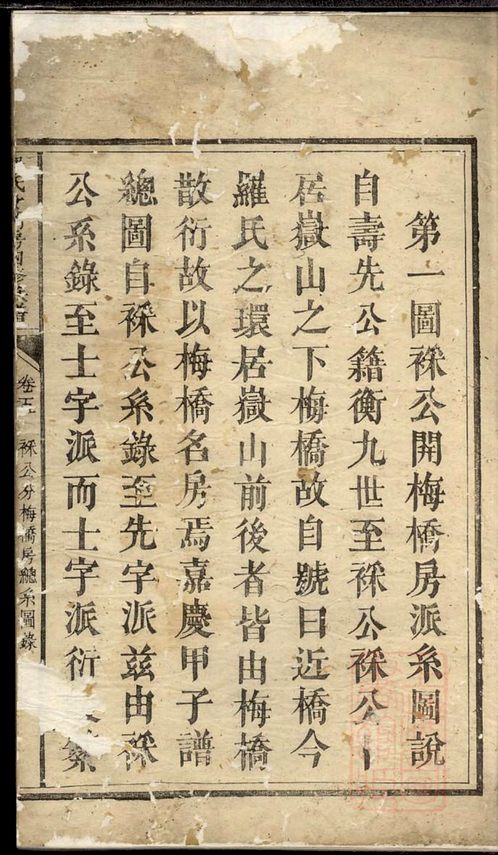 第一圖䘵公開梅橋房派系圖說
自壽先公籍衡九世至䘵公䘵公卜
居嶽山之下梅橋故自號曰近橋今
羅氏之環居嶽山前後者皆由梅橋
散衍故以梅橋名房焉嘉慶甲子譜
總圖自䘵公系錄至先字派茲由䘵
公系錄至士字派而士字派衍
卷五 䘵公分梅橋房總系圖錄